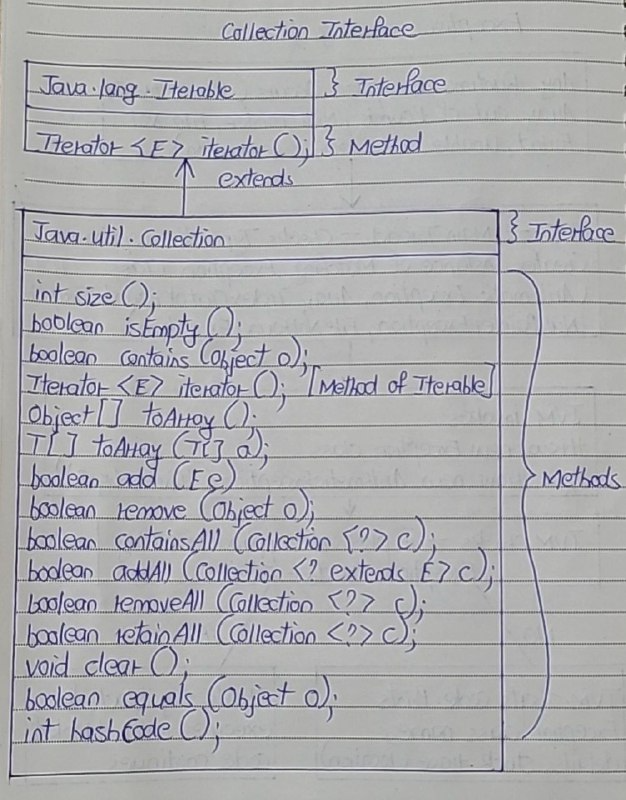 Collection Interface
Java.lang.Iterable } Interface
Iterator <E> iterator(); } Method
extends
Java.util.Collection } Interface
int size();
boolean isEmpty();
boolean contains (Object o);
Iterator <E> iterator(); [Method of Iterable]
Object[] toArray();
T[] toArray (T[] a);
boolean add (E e)
boolean remove (Object o);
boolean containsAll (Collection <?> c);
boolean addAll (Collection <? extends E> c);
boolean removeAll (Collection <?> c);
boolean retainAll (Collection <?> c);
void clear();
boolean equals (Object o);
int hashCode();
} Methods